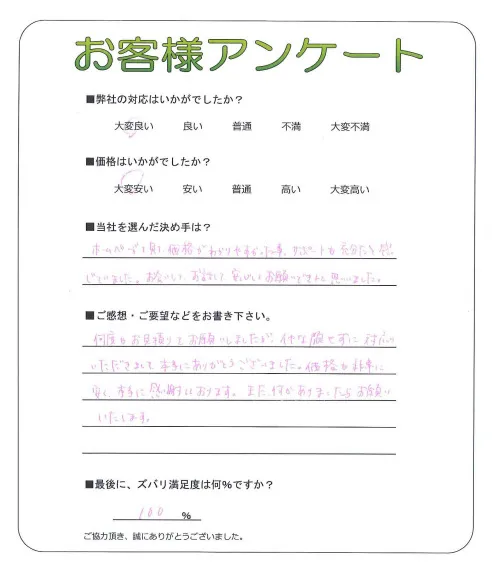 お客様アンケート
■弊社の対応はいかがでしたか?
大変良い 良い 普通 不満 大変不満
■価格はいかがでしたか?
大変安い 安い 普通 高い 大変高い
■当社を選んだ決め手は?
ホームページを見て、価格がわかりやすかった事、サポートも充分だと感
じていました。お会いして、お話して、安心してお願いできると思いました。
■ご感想・ご要望などをお書き下さい。
何度もお見積りをお願いしましたが、イヤな顔せずに対応
いただきまして本当にありがとうございました。価格も非常に
安く、本当に感謝しております。また、何かありましたらお願い
いたします。
■最後に、ズバリ満足度は何%ですか?
100 %
ご協力頂き、誠にありがとうございました。